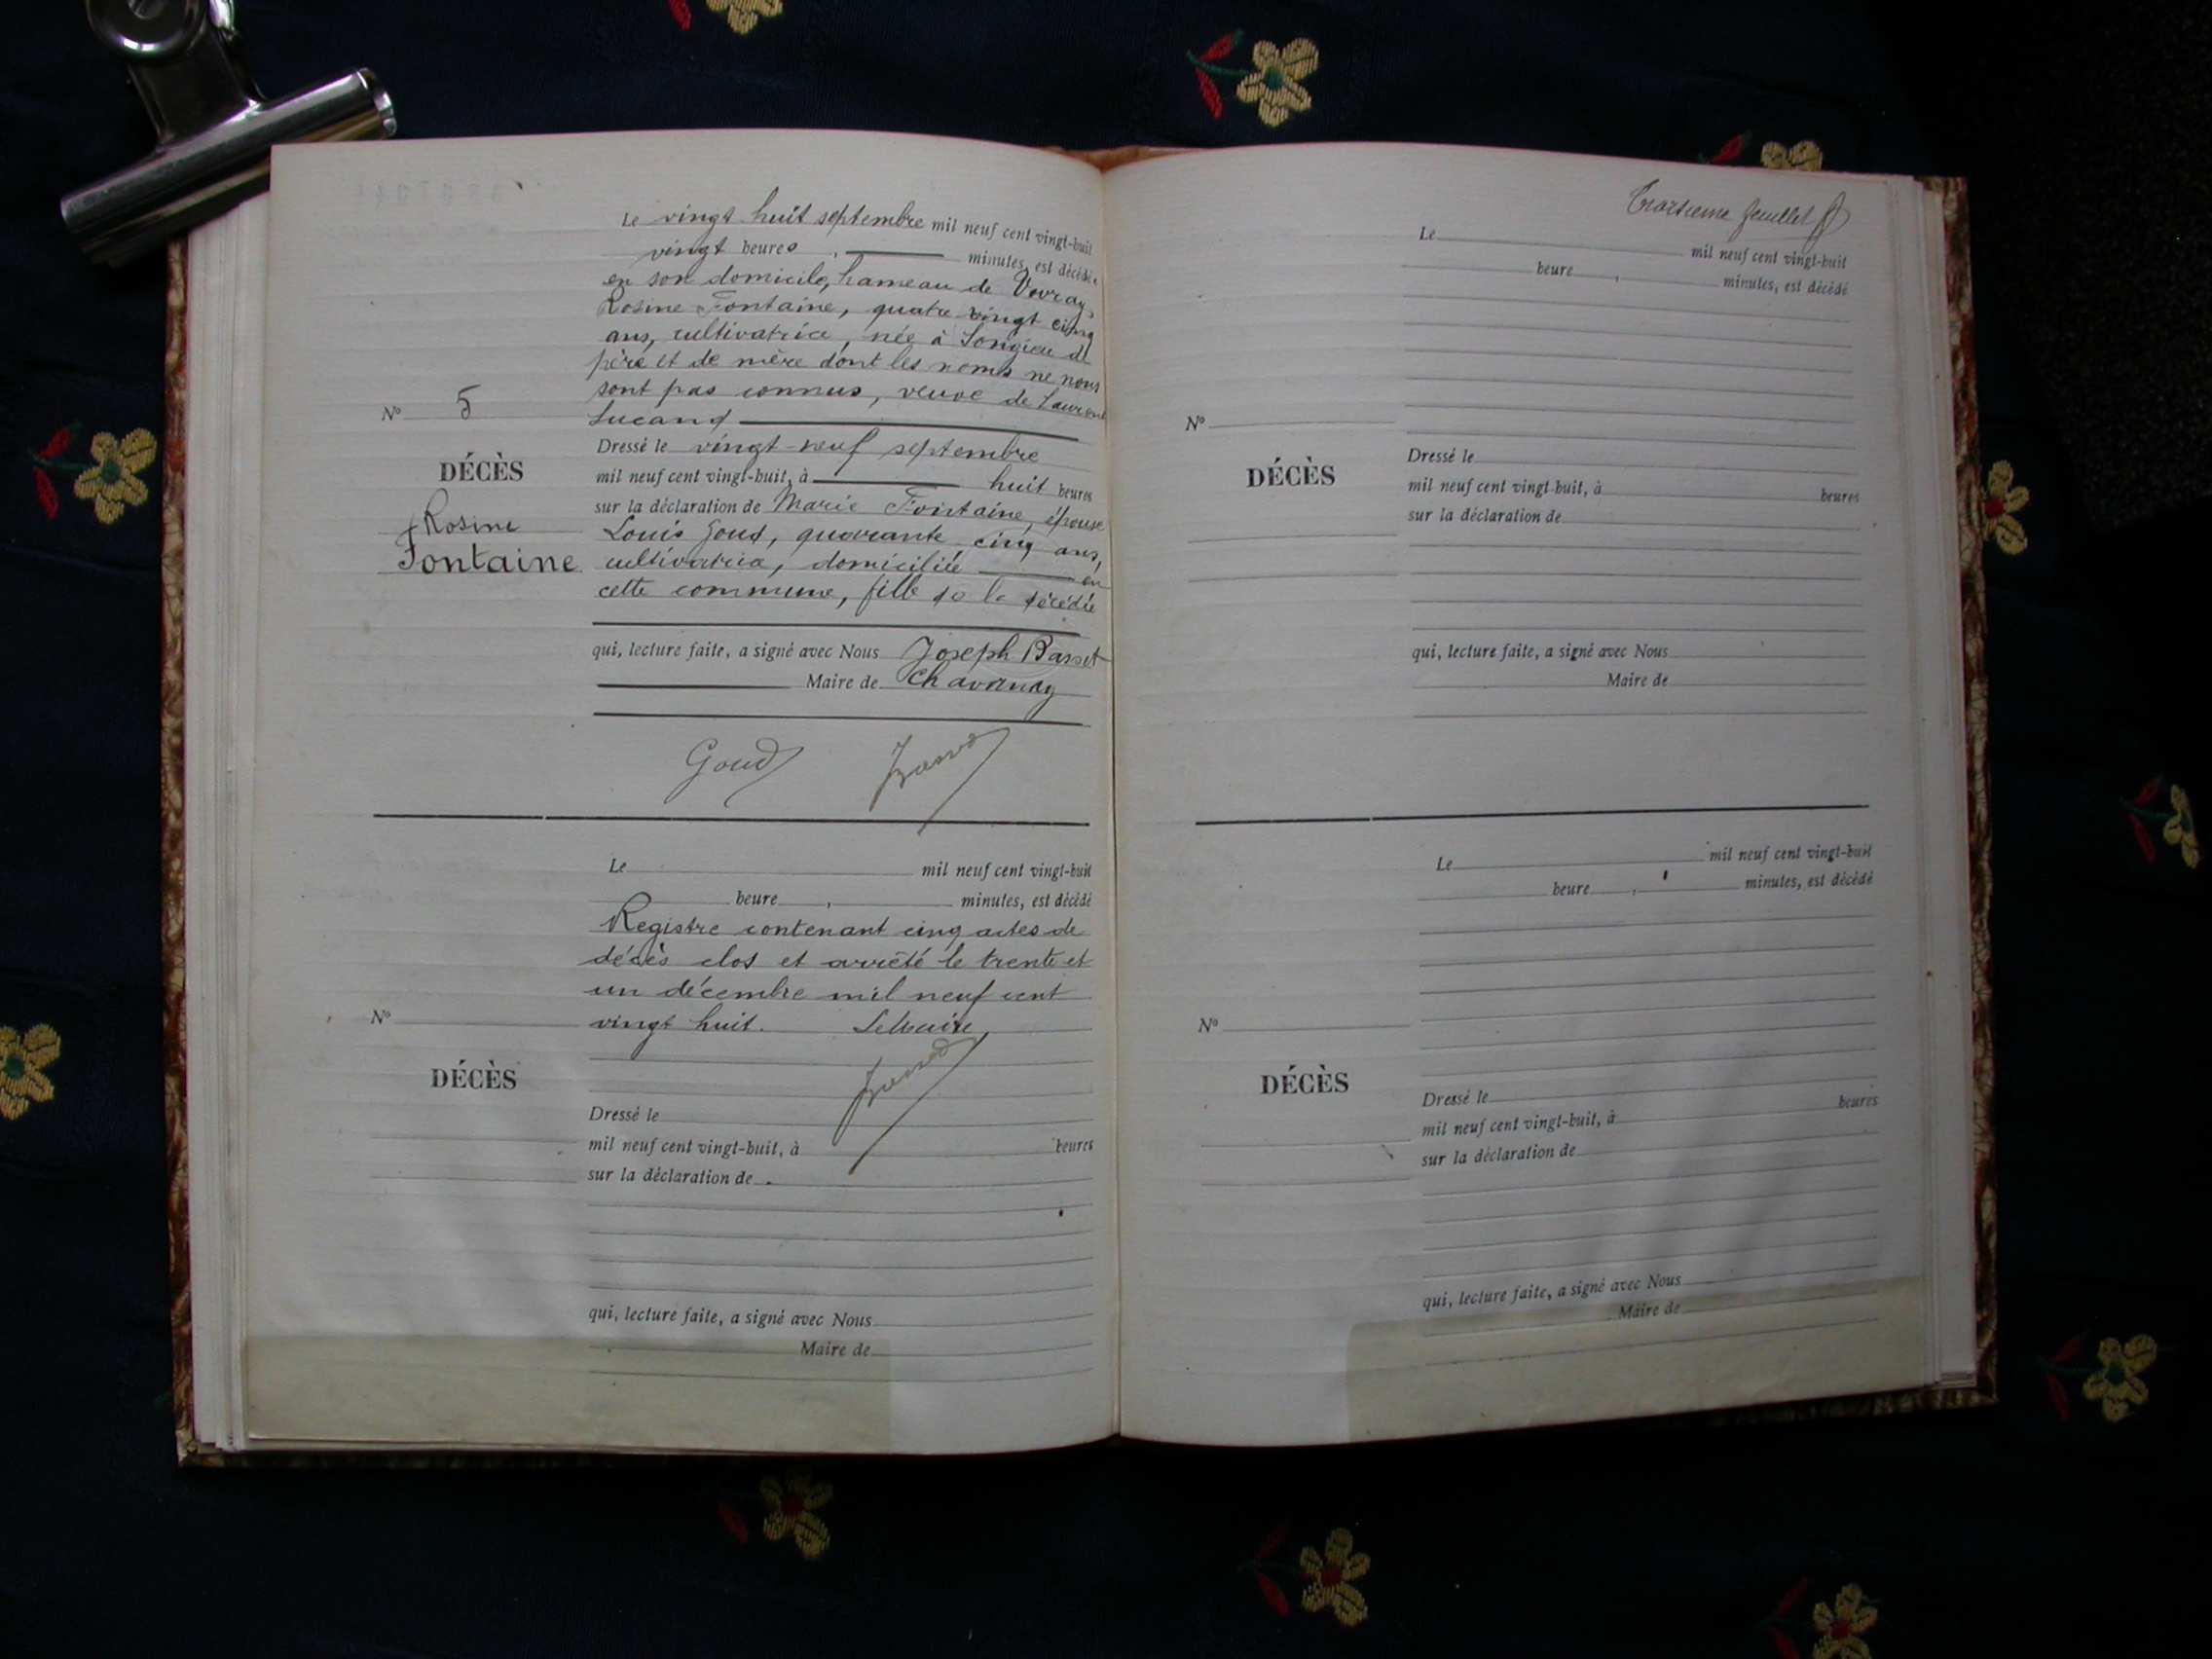 Le vingt huit septembre mil neuf cent vingt-huit
vingt heures, minutes, est décédée
en son domicile, hameau de Vovray,
Rosine Fontaine, quatre vingt cinq
ans, cultivatrice, née à Songieu de
père et de mère dont les noms ne nous
sont pas connus, veuve de Laurent
Lucand
N° 5
DÉCÈS
Rosine
Fontaine
Dressé le vingt-neuf septembre
mil neuf cent vingt-huit, à huit heures
sur la déclaration de Marie Fontaine, épouse
Louis Goud, quarante cinq ans,
cultivatrice, domiciliée en
cette commune, fille de la décédée
qui, lecture faite, a signé avec Nous Joseph Basset
Maire de Chavanay
Goud
Le mil neuf cent vingt-huit
heure, minutes, est décédé
Registre contenant cinq actes de
décès clos et arrêté le trente et
un décembre mil neuf cent
vingt huit. Le Maire
N°
DÉCÈS
Dressé le
mil neuf cent vingt-huit, à heures
sur la déclaration de
qui, lecture faite, a signé avec Nous
Maire de
Troisième feuillet
Le mil neuf cent vingt-huit
heure, minutes, est décédé
N°
DÉCÈS
Dressé le
mil neuf cent vingt-huit, à heures
sur la déclaration de
qui, lecture faite, a signé avec Nous
Maire de
Le mil neuf cent vingt-huit
heure, minutes, est décédé
N°
DÉCÈS
Dressé le
mil neuf cent vingt-huit, à heures
sur la déclaration de
qui, lecture faite, a signé avec Nous
Maire de